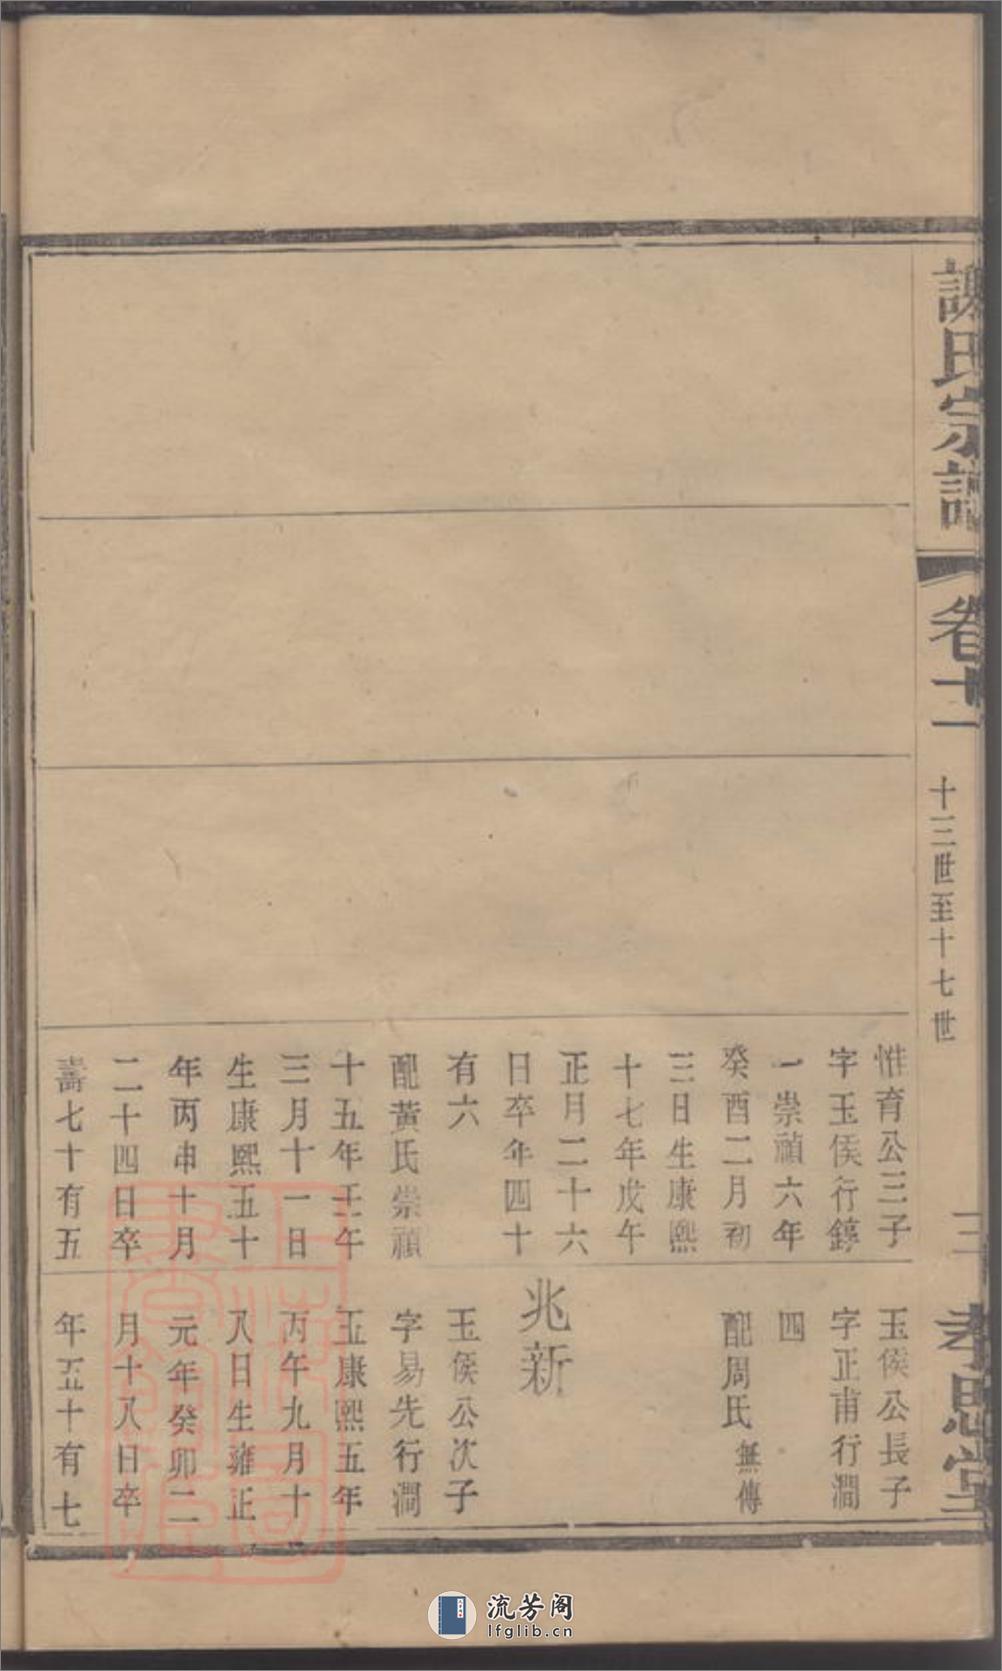 謝氏宗譜
卷十一
十三世至十七世
孝思堂
惟育公三子
字玉侯行錞
一崇禎六年
癸酉二月初
三日生康熙
十七年戊午
正月二十六
日卒年四十
有六
配黃氏崇禎
十五年壬午
三月十一日
生康熙五十
年丙申十月
二十四日卒
壽七十有五
玉侯公長子
字正甫行澗
四
配周氏無傳
兆新
玉侯公次子
字易先行澗
五康熙五年
丙午九月十
八日生雍正
元年癸卯二
月十八日卒
年五十有七
流芳阁
lfglib.cn